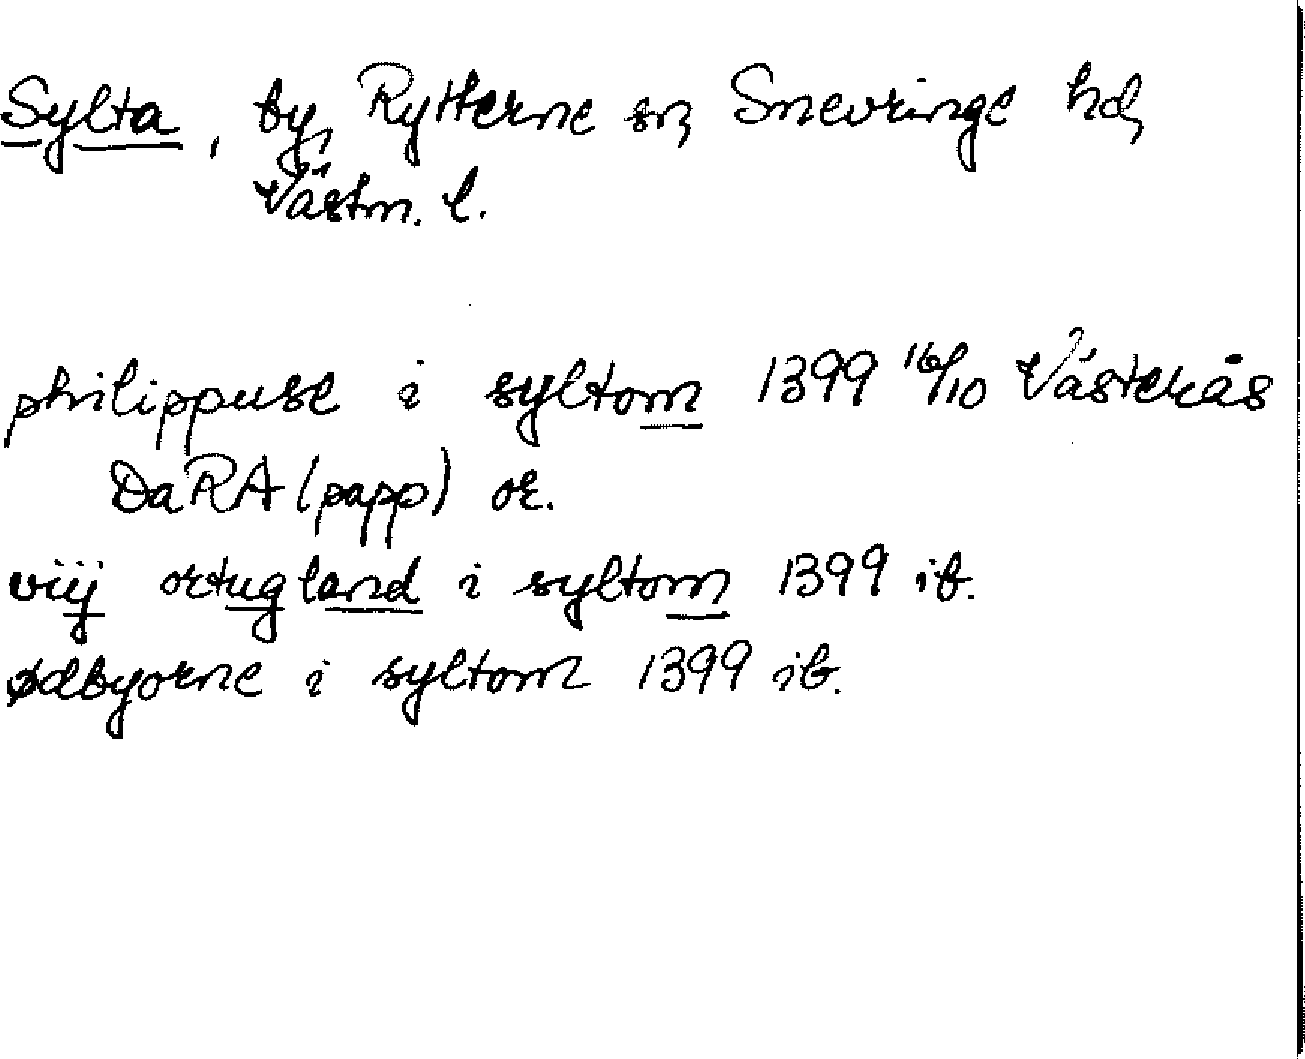 Sylta, by, Rytterne sn, Snevringe hd,
Västm. l.
philippuse i syltom 1399 16/10 Västerås
DaRA (papp) or.
viij ortugland i syltom 1399 ib.
ødbyorne i syltom 1399 ib.